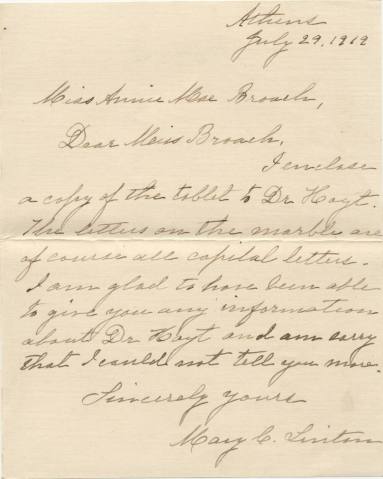 Athens
July 29, 1919
Miss Annie Mae Broach,
Dear Miss Broach,
I enclose
a copy of the tablet to Dr Hoyt.
The letters on the marble are
of course all capital letters.
I am glad to have been able
to give you any information
about Dr Hoyt and am sorry
that I could not tell you more.
Sincerely yours
Mary C. Linton